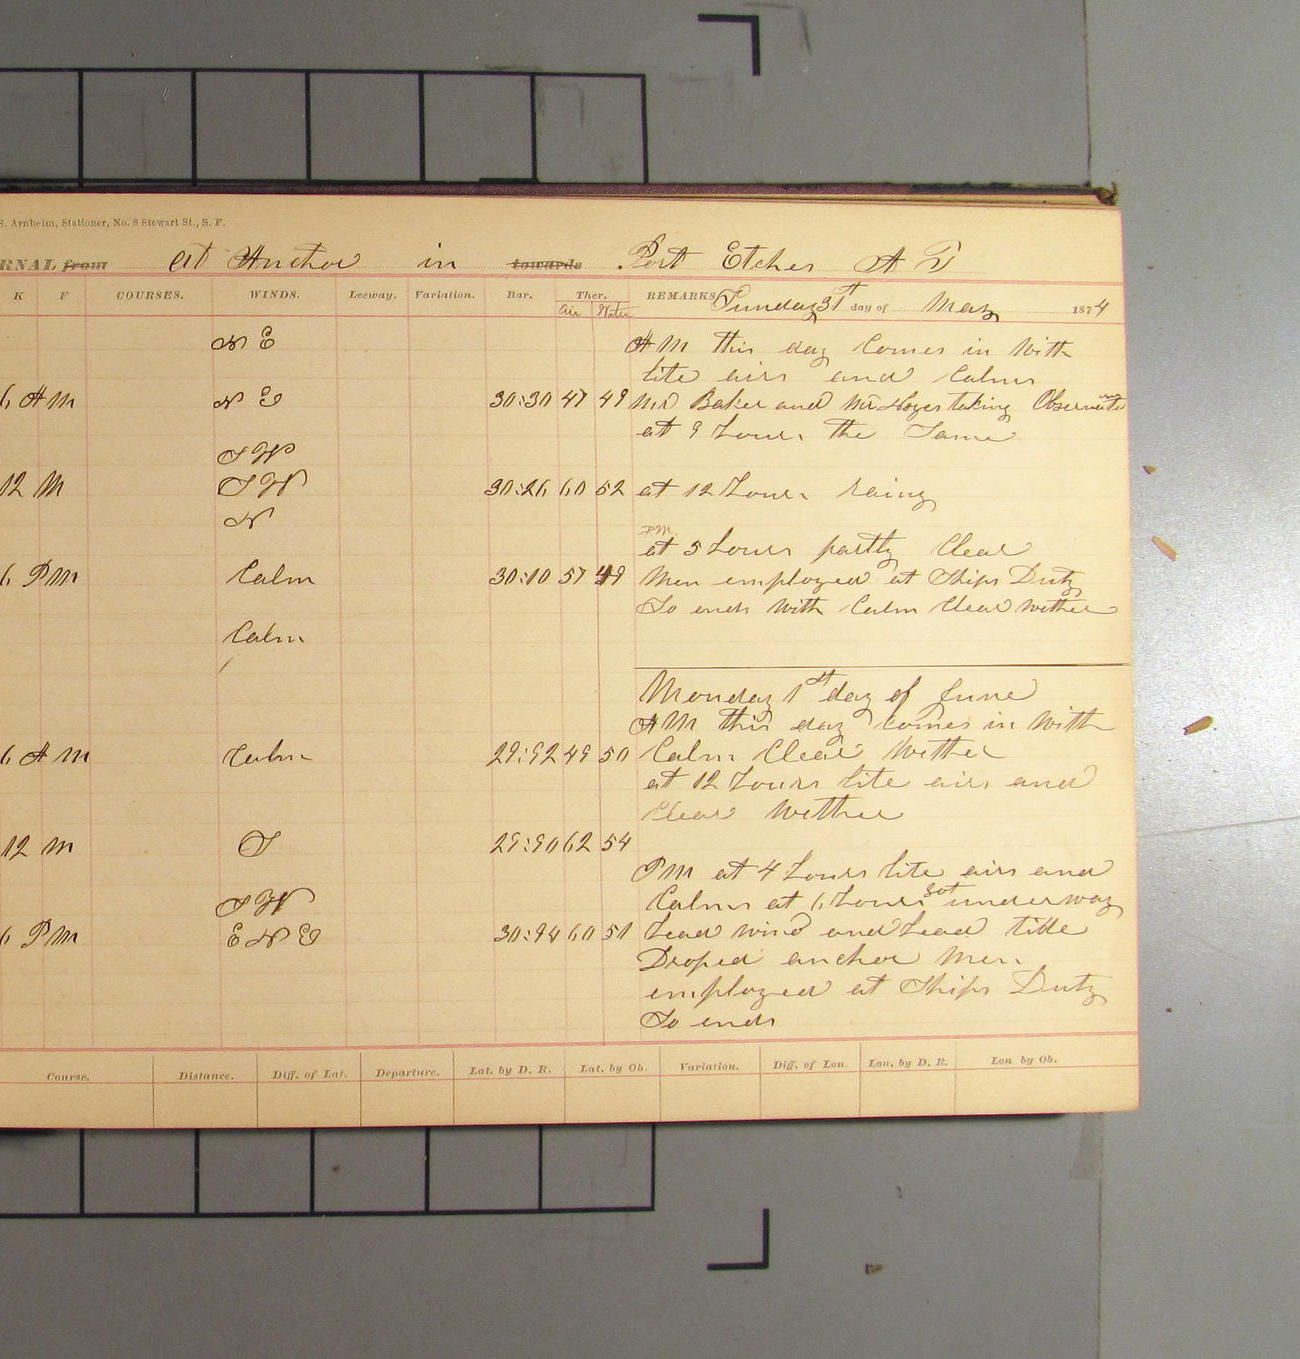 S. Arnheim, Stationer, No. 8 Stewart St., S. F.
RNAL from at Anchor in towards Port Etches A T
K F COURSES. WINDS. Leeway. Variation. Bar. Ther. REMARKS, Sunday 31st day of May 1874
Air Water
N E AM this day Comes in With
lite airs and Calms
6 AM N E 30:30 47 49 Mr Baker and Mr Noyes taking Observations
at 9 Hours the Same
S W
12 M S W 30:26 60 52 at 12 Hours rainy
N
PM
at 5 Hours partly Clear
6 PM Calm 30:10 57 49 Men employed at Ships Duty
So ends With Calm Clear Wether
Calm
Monday 1st day of June
AM this day Comes in With
6 AM Calm 29:92 49 50 Calm Clear Wether
at 12 Hours lite airs and
Clear Wether
12 M S 29:90 62 54
PM at 4 Hours lite airs and
S W Calms at 6 Hours Got underway
6 PM E N E 30:94 60 51 Head wind and Head tide
Droped anchor Men
employed at Ships Duty
So ends
Course. Distance. Diff. of Lat. Departure. Lat. by D. R. Lat. by Ob. Variation. Diff. of Lon. Lon. by D. R. Lon. by Ob.